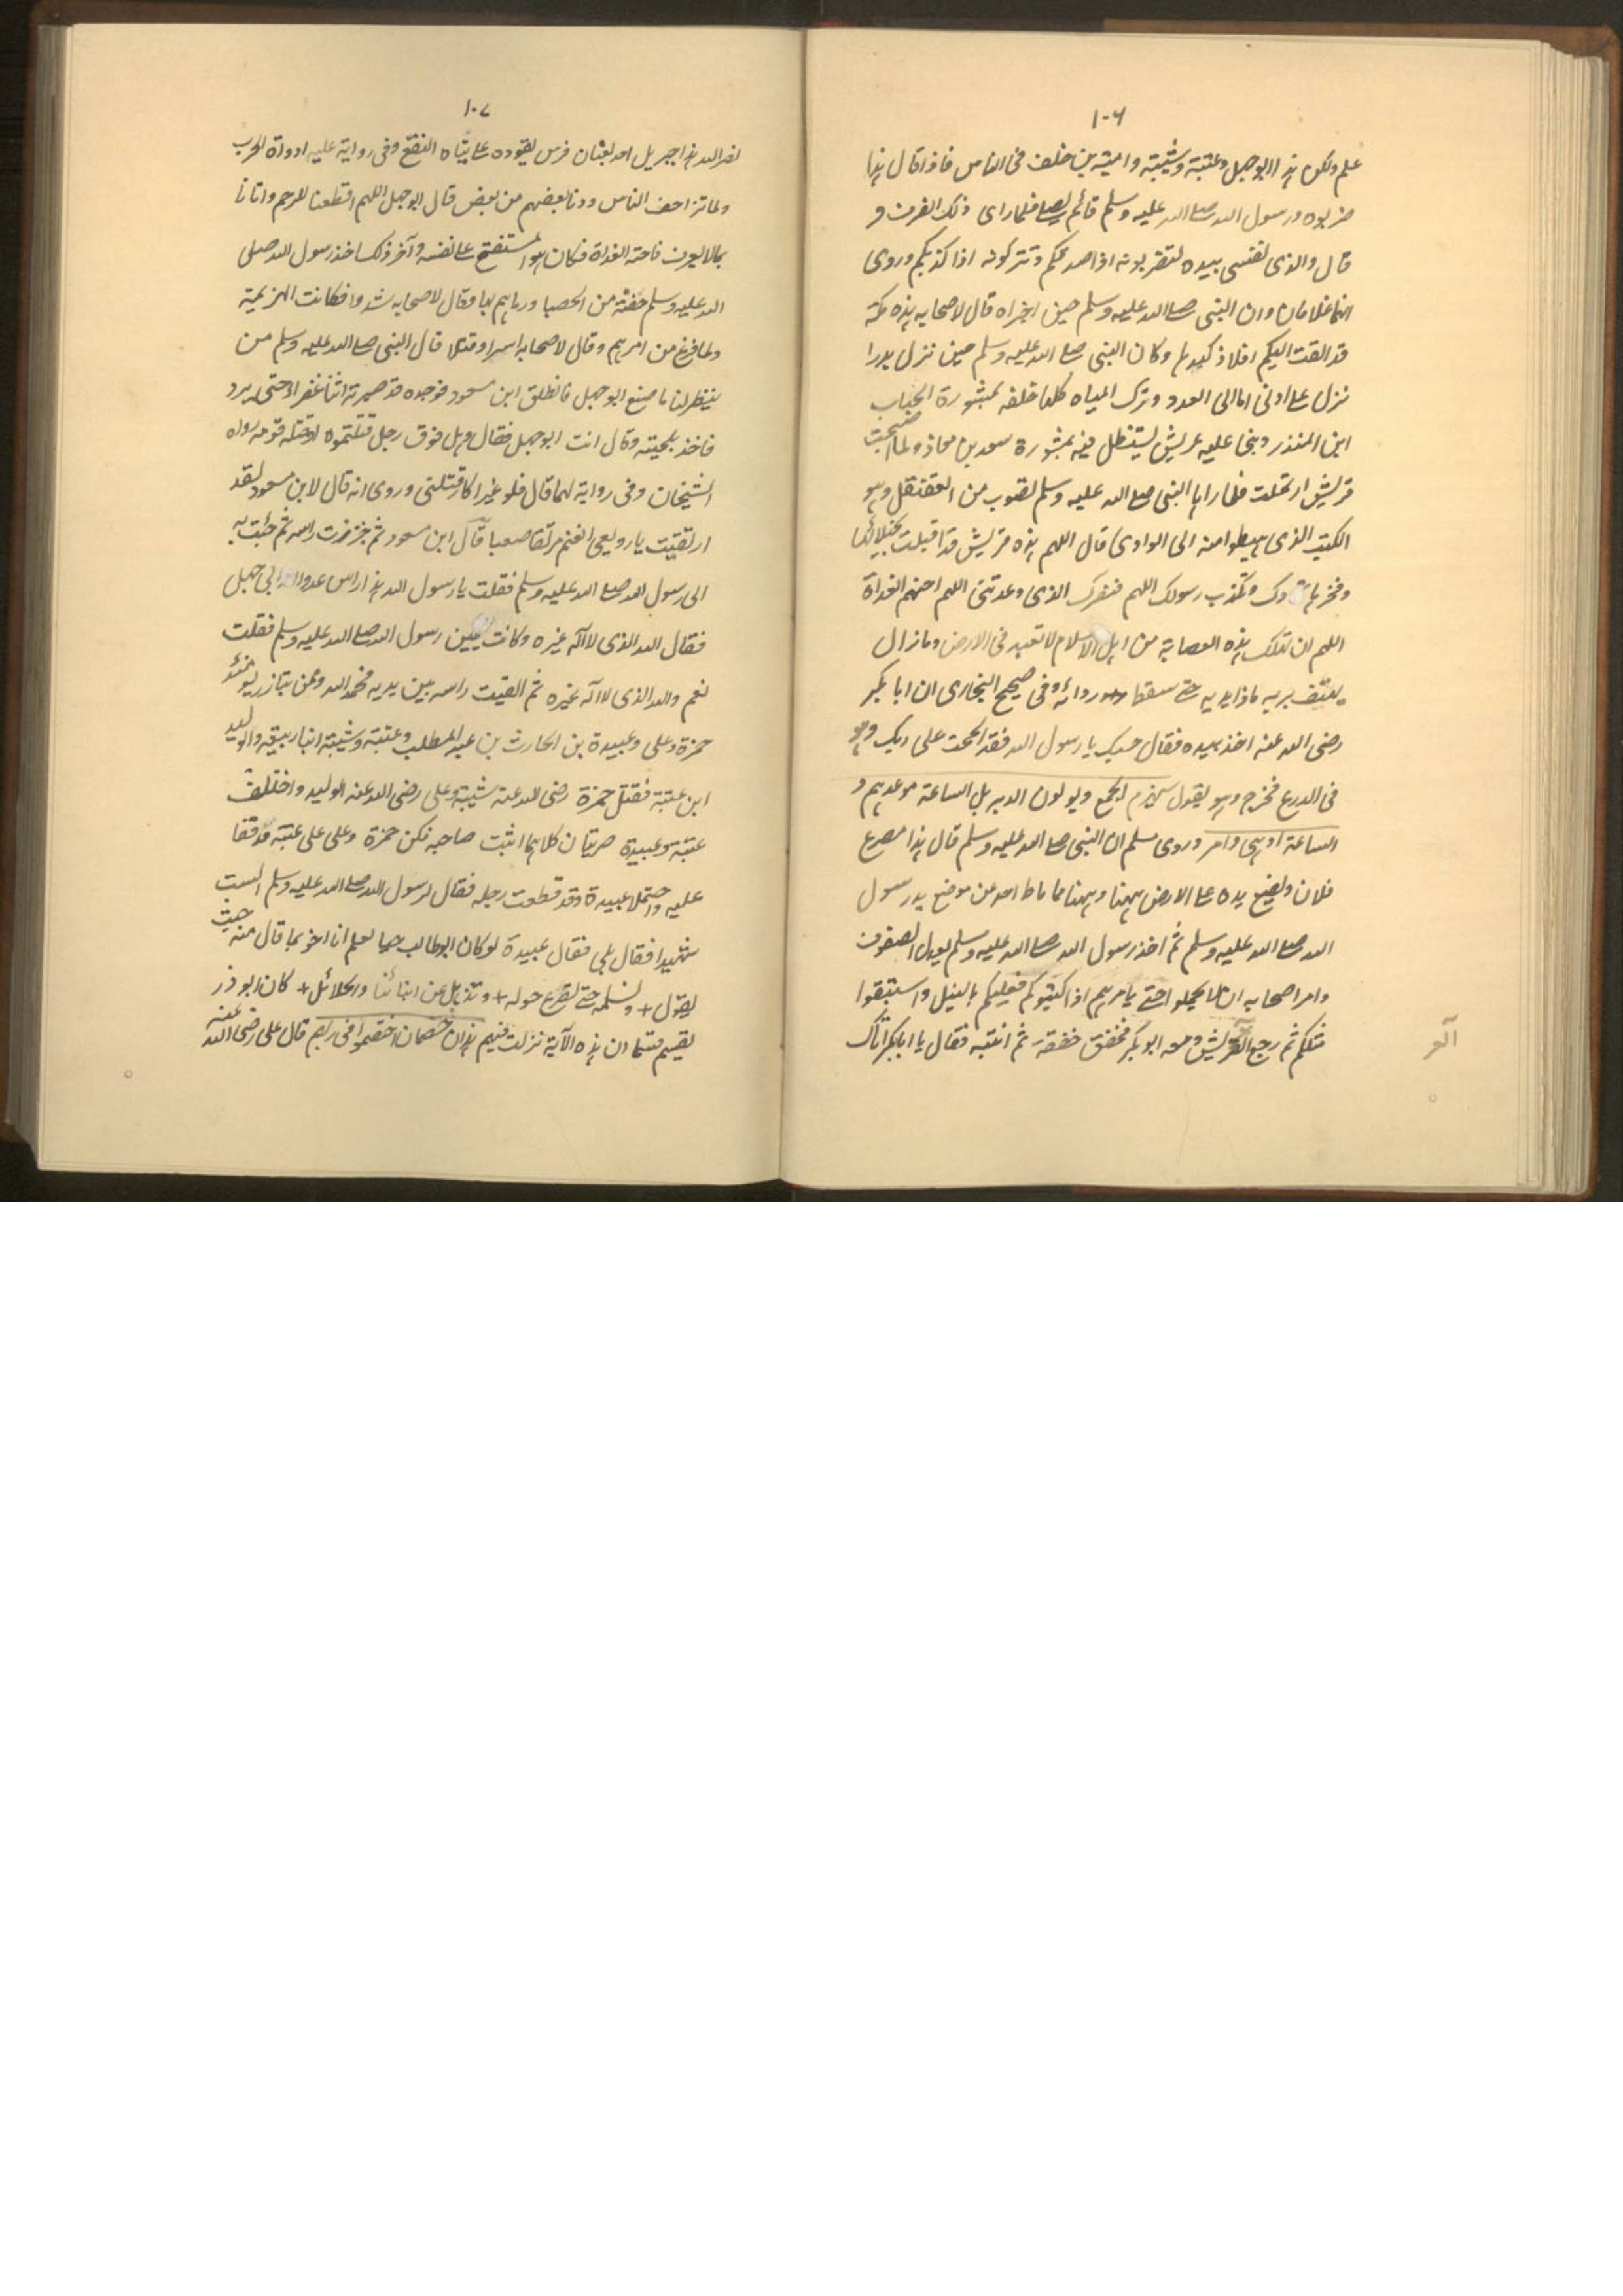 ١٠٦
علم ولكن هذا ابو جهل وعتبة وشيبة وامية بن خلف في الناس فاذا قال هذا
ضربوه ورسول الله صلى الله عليه وسلم قائم يصلى فلما راى ذلك انصرف و
قال والذى نفسى بيده لتضربونه اذا صدقكم وتتركونه اذا كذبكم وروى
انهما غلامان وان النبى صلى الله عليه وسلم حين اخبراه قال لاصحابه هذه مكة
قد القت اليكم افلاذ كبدها وكان النبى صلى الله عليه وسلم حين نزل بدرا
نزل على ادنى الى العدو وترك المياه كلها خلفه بمشورة الحباب
ابن المنذر وبنى عليه عريش ليستظل فيه بمشورة سعد بن معاذ ولما اصبحت
قريش ارتحلت فلما راها النبى صلى الله عليه وسلم تصوب من العقنقل وهو
الكثيب الذى هبطوا منه الى الوادى قال اللهم هذه قريش قد اقبلت بخيلائها
وفخرها تحادك وتكذب رسولك اللهم فنصرك الذى وعدتنى اللهم احنهم الغداة
اللهم ان تهلك هذه العصابة من اهل الاسلام لا تعبد فى الارض ومازال
يهتف بربه مادا يديه حتى سقط رداؤه وفى صحيح البخارى ان ابا بكر
رضى الله عنه اخذ بيده فقال حسبك يا رسول الله فقد الححت على ربك وهو
فى الدرع فخرج وهو يقول سيهزم الجمع ويولون الدبر بل الساعة موعدهم و
الساعة ادهى وامر وروى مسلم ان النبى صلى الله عليه وسلم قال هذا مصرع
فلان ويضع يده على الارض ههنا وههنا فما ماط احد عن موضع يد رسول
الله صلى الله عليه وسلم ثم اخذ رسول الله صلى الله عليه وسلم يعدل الصفوف
وامر اصحابه ان لا يحملوا حتى يأمرهم اذا اكثبوكم فعليكم بالنبل واستبقوا
نبلكم ثم رجع العريش ومعه ابو بكر فخفق خفقة ثم انتبه فقال يا ابا بكر اتاك
العر
١٠٧
نصر الله هذا جبريل اخذ بعنان فرس يقوده على ثناياه النقع وفى رواية عليه اداة الحرب
ولما تزاحف الناس ودنا بعضهم من بعض قال ابو جهل اللهم اقطعنا للرحم واتانا
بما لا يعرف فاحنه الغداة فكان هو المستفتح على نفسه واخر ذلك اخذ رسول الله صلى
الله عليه وسلم حفنة من الحصبا ورماهم بها وقال لاصحابه شدوا فكانت الهزيمة
ولما فرغ من امرهم وقال لاصحابه اسرا وقتلا قال النبى صلى الله عليه وسلم من
ينظر لنا ما صنع ابو جهل فانطلق ابن مسعود فوجده قد ضربه ابنا عفراء حتى برد
فاخذ بلحيته وقال انت ابو جهل فقال وهل فوق رجل قتلتموه او قتله قومه رواه
الشيخان وفى رواية لهما قال فلو غير اكار قتلنى وروى انه قال لابن مسعود لقد
ارتقيت يا رويعى الغنم مرتقا صعبا قال ابن مسعود ثم جززت راسه ثم جئت به
الى رسول الله صلى الله عليه وسلم فقلت يا رسول الله هذا راس عدو الله ابى جهل
فقال الله الذى لا اله غيره وكانت يمين رسول الله صلى الله عليه وسلم فقلت
نعم والله الذى لا اله غيره ثم القيت راسه بين يديه فحمد الله وممن تبارز يومئذ
حمزة وعلى وعبيدة بن الحارث بن عبد المطلب وعتبة وشيبة ابنا ربيعة والوليد
ابن عتبة فقتل حمزة رضى الله عنه شيبة وعلى رضى الله عنه الوليد واختلف
عتبة وعبيدة ضربتان كلاهما اثبت صاحبه فكر حمزة وعلى على عتبة فدففا
عليه واحتملا عبيدة وقد قطعت رجله فقال لرسول الله صلى الله عليه وسلم الست
شهيدا فقال بلى فقال عبيدة لو كان ابو طالب حيا لعلم انا احق بما قال منه حيث
يقول + ونسلمه حتى نصرع حوله + ونذهل عن ابنائنا والحلائل + كان ابو ذر
يقسم قسما ان هذه الآية نزلت فيهم هذان خصمان اختصموا فى ربهم قال على رضى الله عنه